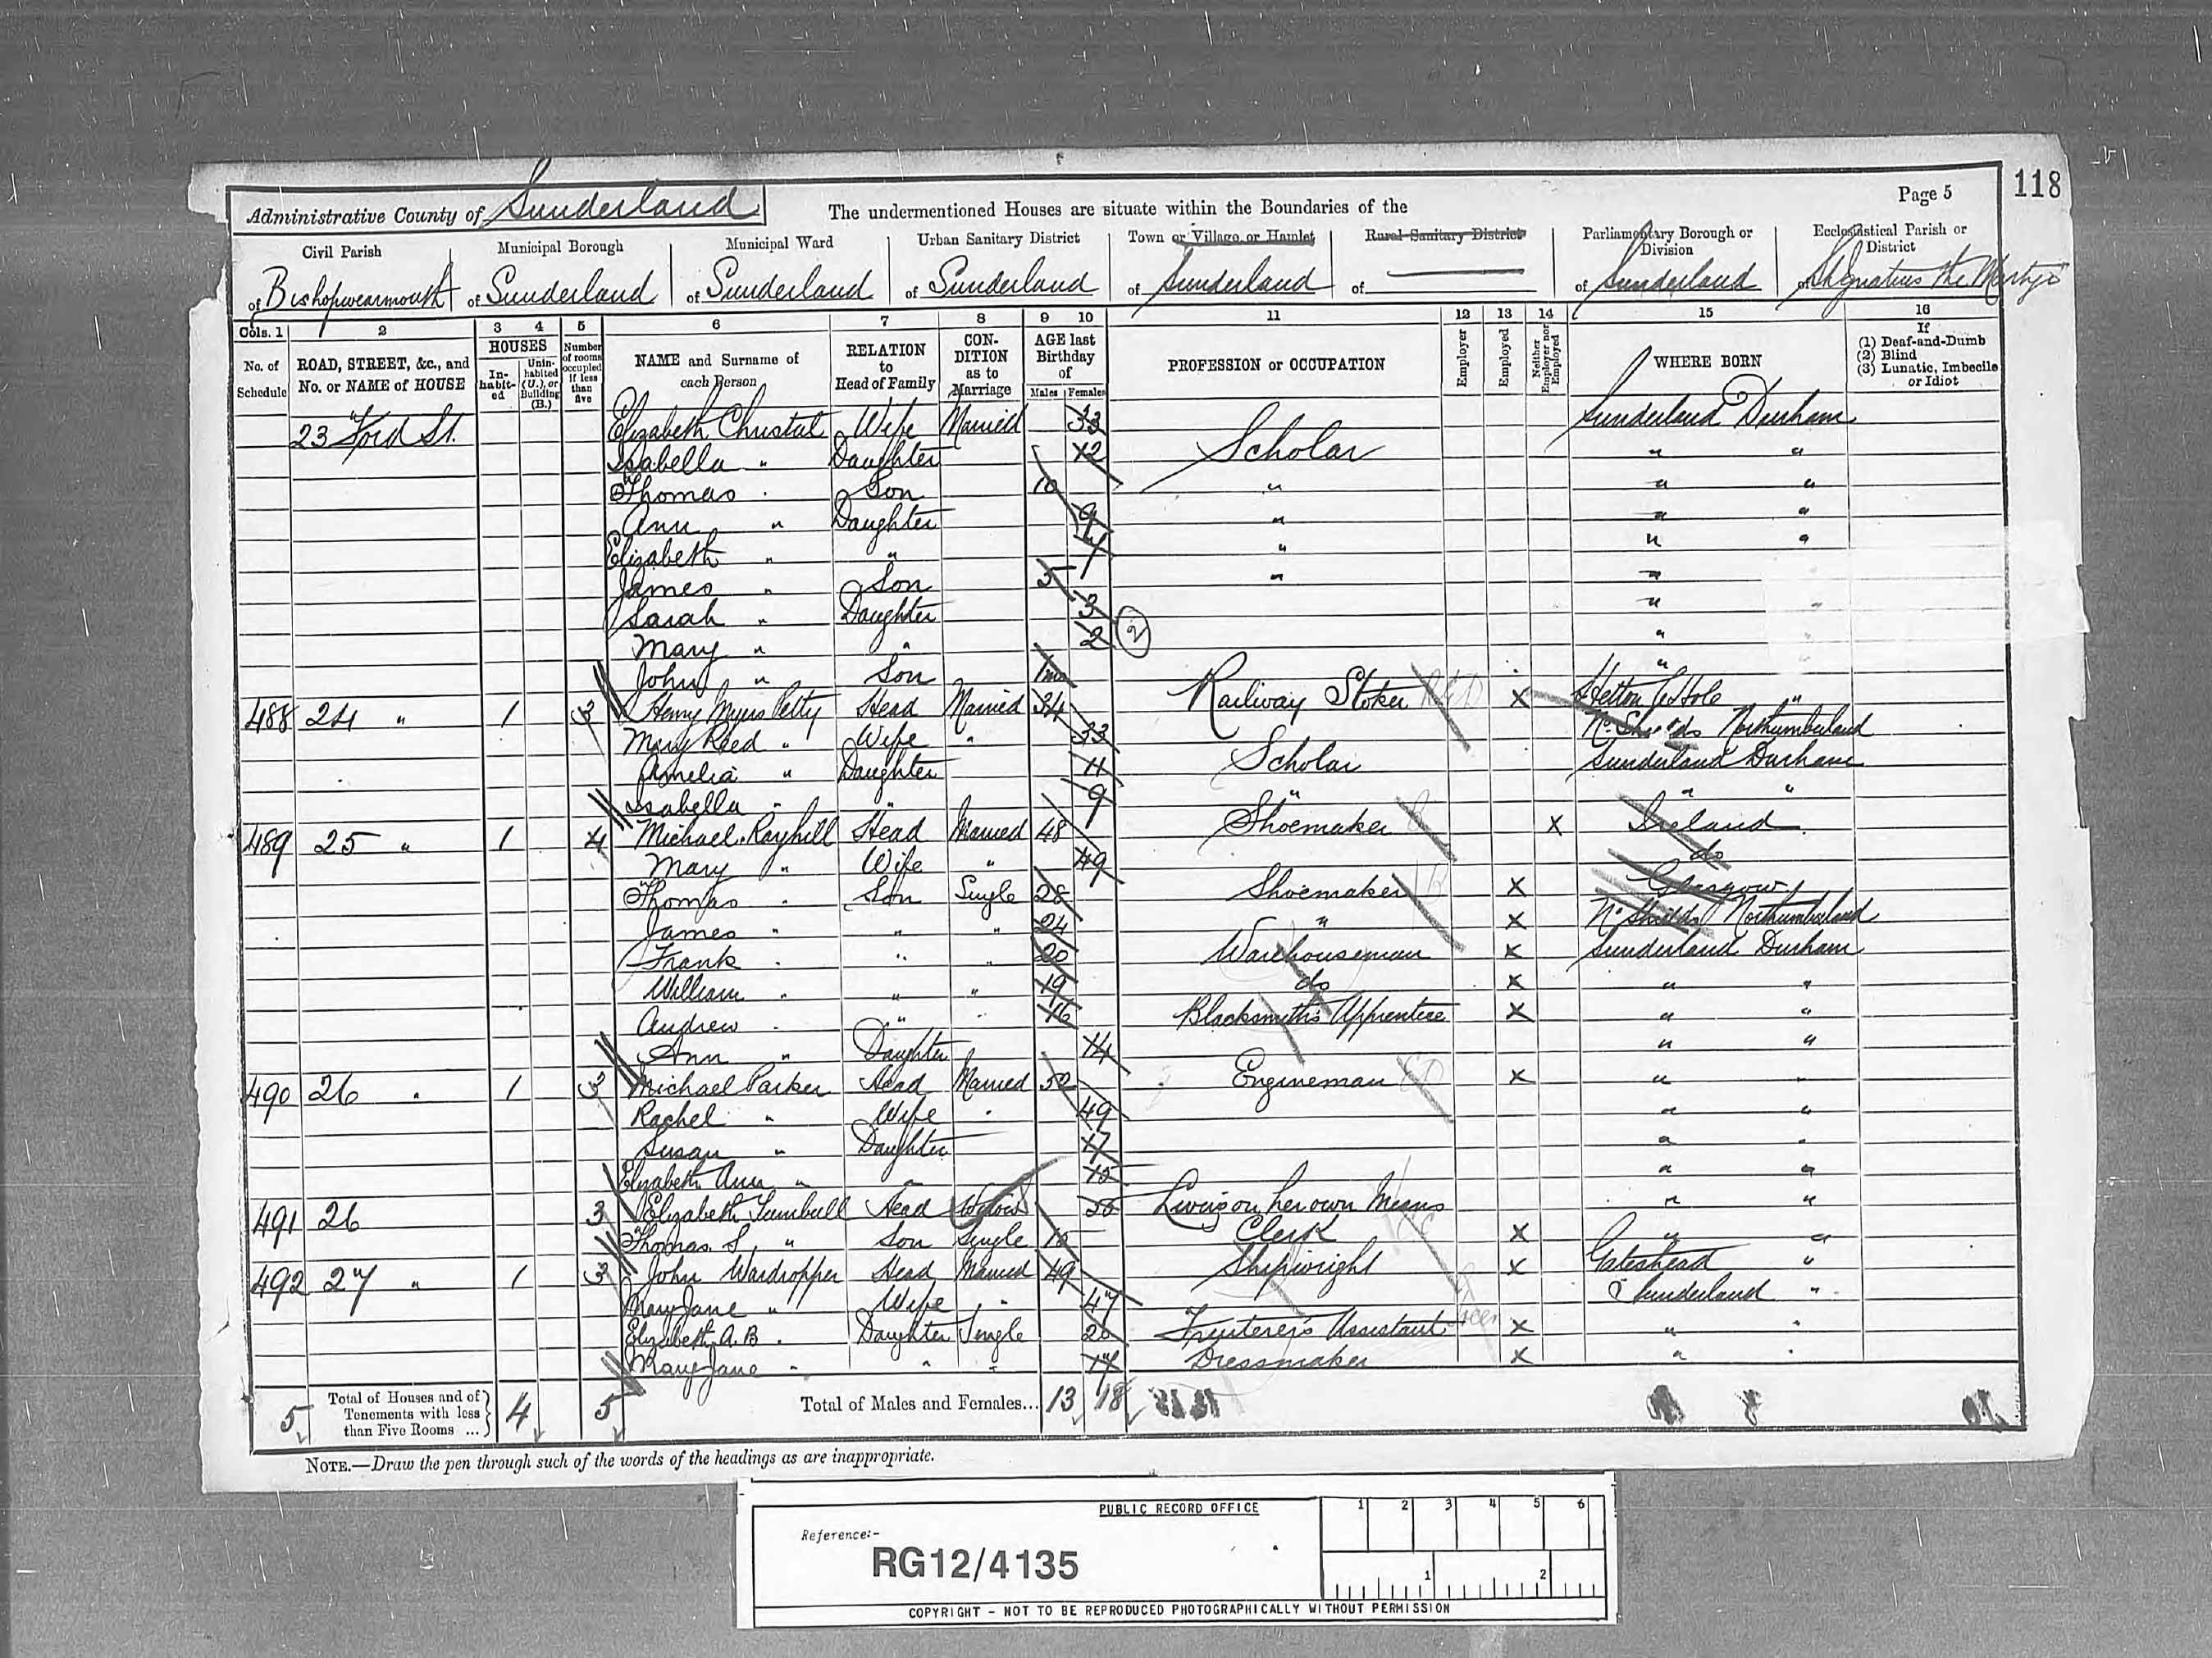 118
Page 5
Administrative County of Sunderland
The undermentioned Houses are situate within the Boundaries of the
Civil Parish of Bishopwearmouth
Municipal Borough of Sunderland
Municipal Ward of Sunderland
Urban Sanitary District of Sunderland
Town or Village or Hamlet of Sunderland
Rural Sanitary District of
Parliamentary Borough or Division of Sunderland
Ecclesiastical Parish or District of St Ignatius the Martyr
Cols. 1 2 3 4 5 6 7 8 9 10 11 12 13 14 15 16
No. of Schedule
ROAD, STREET, &c., and No. or NAME of HOUSE
HOUSES
Inhabited
Uninhabited (U.), or Building (B.)
Number of rooms occupied if less than five
NAME and Surname of each Person
RELATION to Head of Family
CONDITION as to Marriage
AGE last Birthday of
Males Females
PROFESSION or OCCUPATION
Employer
Employed
Neither Employer nor Employed
WHERE BORN
If
(1) Deaf-and-Dumb
(2) Blind
(3) Lunatic, Imbecile or Idiot
23 Ford St. Elizabeth Christal Wife Married 33 Sunderland Durham
Isabella " Daughter 12 Scholar " "
Thomas " Son 10 " " "
Ann " Daughter 9 " " "
Elizabeth " " 7 " " "
James " Son 5 " "
Sarah " Daughter 3 " "
Mary " " 2 (2) " "
John " Son 1 mo "
488 24 " 1 3 Henry Myers Petty Head Married 34 Railway Stoker X Hetton Le Hole "
Mary Reed " Wife " 33 No. Shields Northumberland
Amelia " Daughter 11 Scholar Sunderland Durham
Isabella " " 9 " " "
489 25 " 1 4 Michael Rayhill Head Married 48 Shoemaker X Ireland
Mary " Wife " 49 do
Thomas " Son Single 28 Shoemaker X Glasgow
James " " " 24 " X No. Shields Northumberland
Frank " " " 20 Warehouseman X Sunderland Durham
William " " " 19 do X " "
Andrew " " " 16 Blacksmith's Apprentice X " "
Ann " Daughter 14 " "
490 26 " 1 3 Michael Parker Head Married 50 Engineman X " "
Rachel " Wife " 49 " "
Susan " Daughter 17 " "
Elizabeth Ann " " 15 " "
491 26 3 Elizabeth Turnbull Head Widow Living on her own Means " "
Thomas S. " Son Single Clerk X " "
492 27 " 1 3 John Wardropper Head Married 49 Shipwright X Gateshead "
Mary Jane " Wife " 47 Sunderland "
Elizabeth A. B. " Daughter Single 20 Fruiterer's Assistant X " "
Mary Jane " " " 17 Dressmaker X " "
5 Total of Houses and of Tenements with less than Five Rooms ... 4 5 Total of Males and Females... 13 18
NOTE.—Draw the pen through such of the words of the headings as are inappropriate.
PUBLIC RECORD OFFICE
1 2 3 4 5 6
Reference:-
RG12/4135
1 2
COPYRIGHT - NOT TO BE REPRODUCED PHOTOGRAPHICALLY WITHOUT PERMISSION